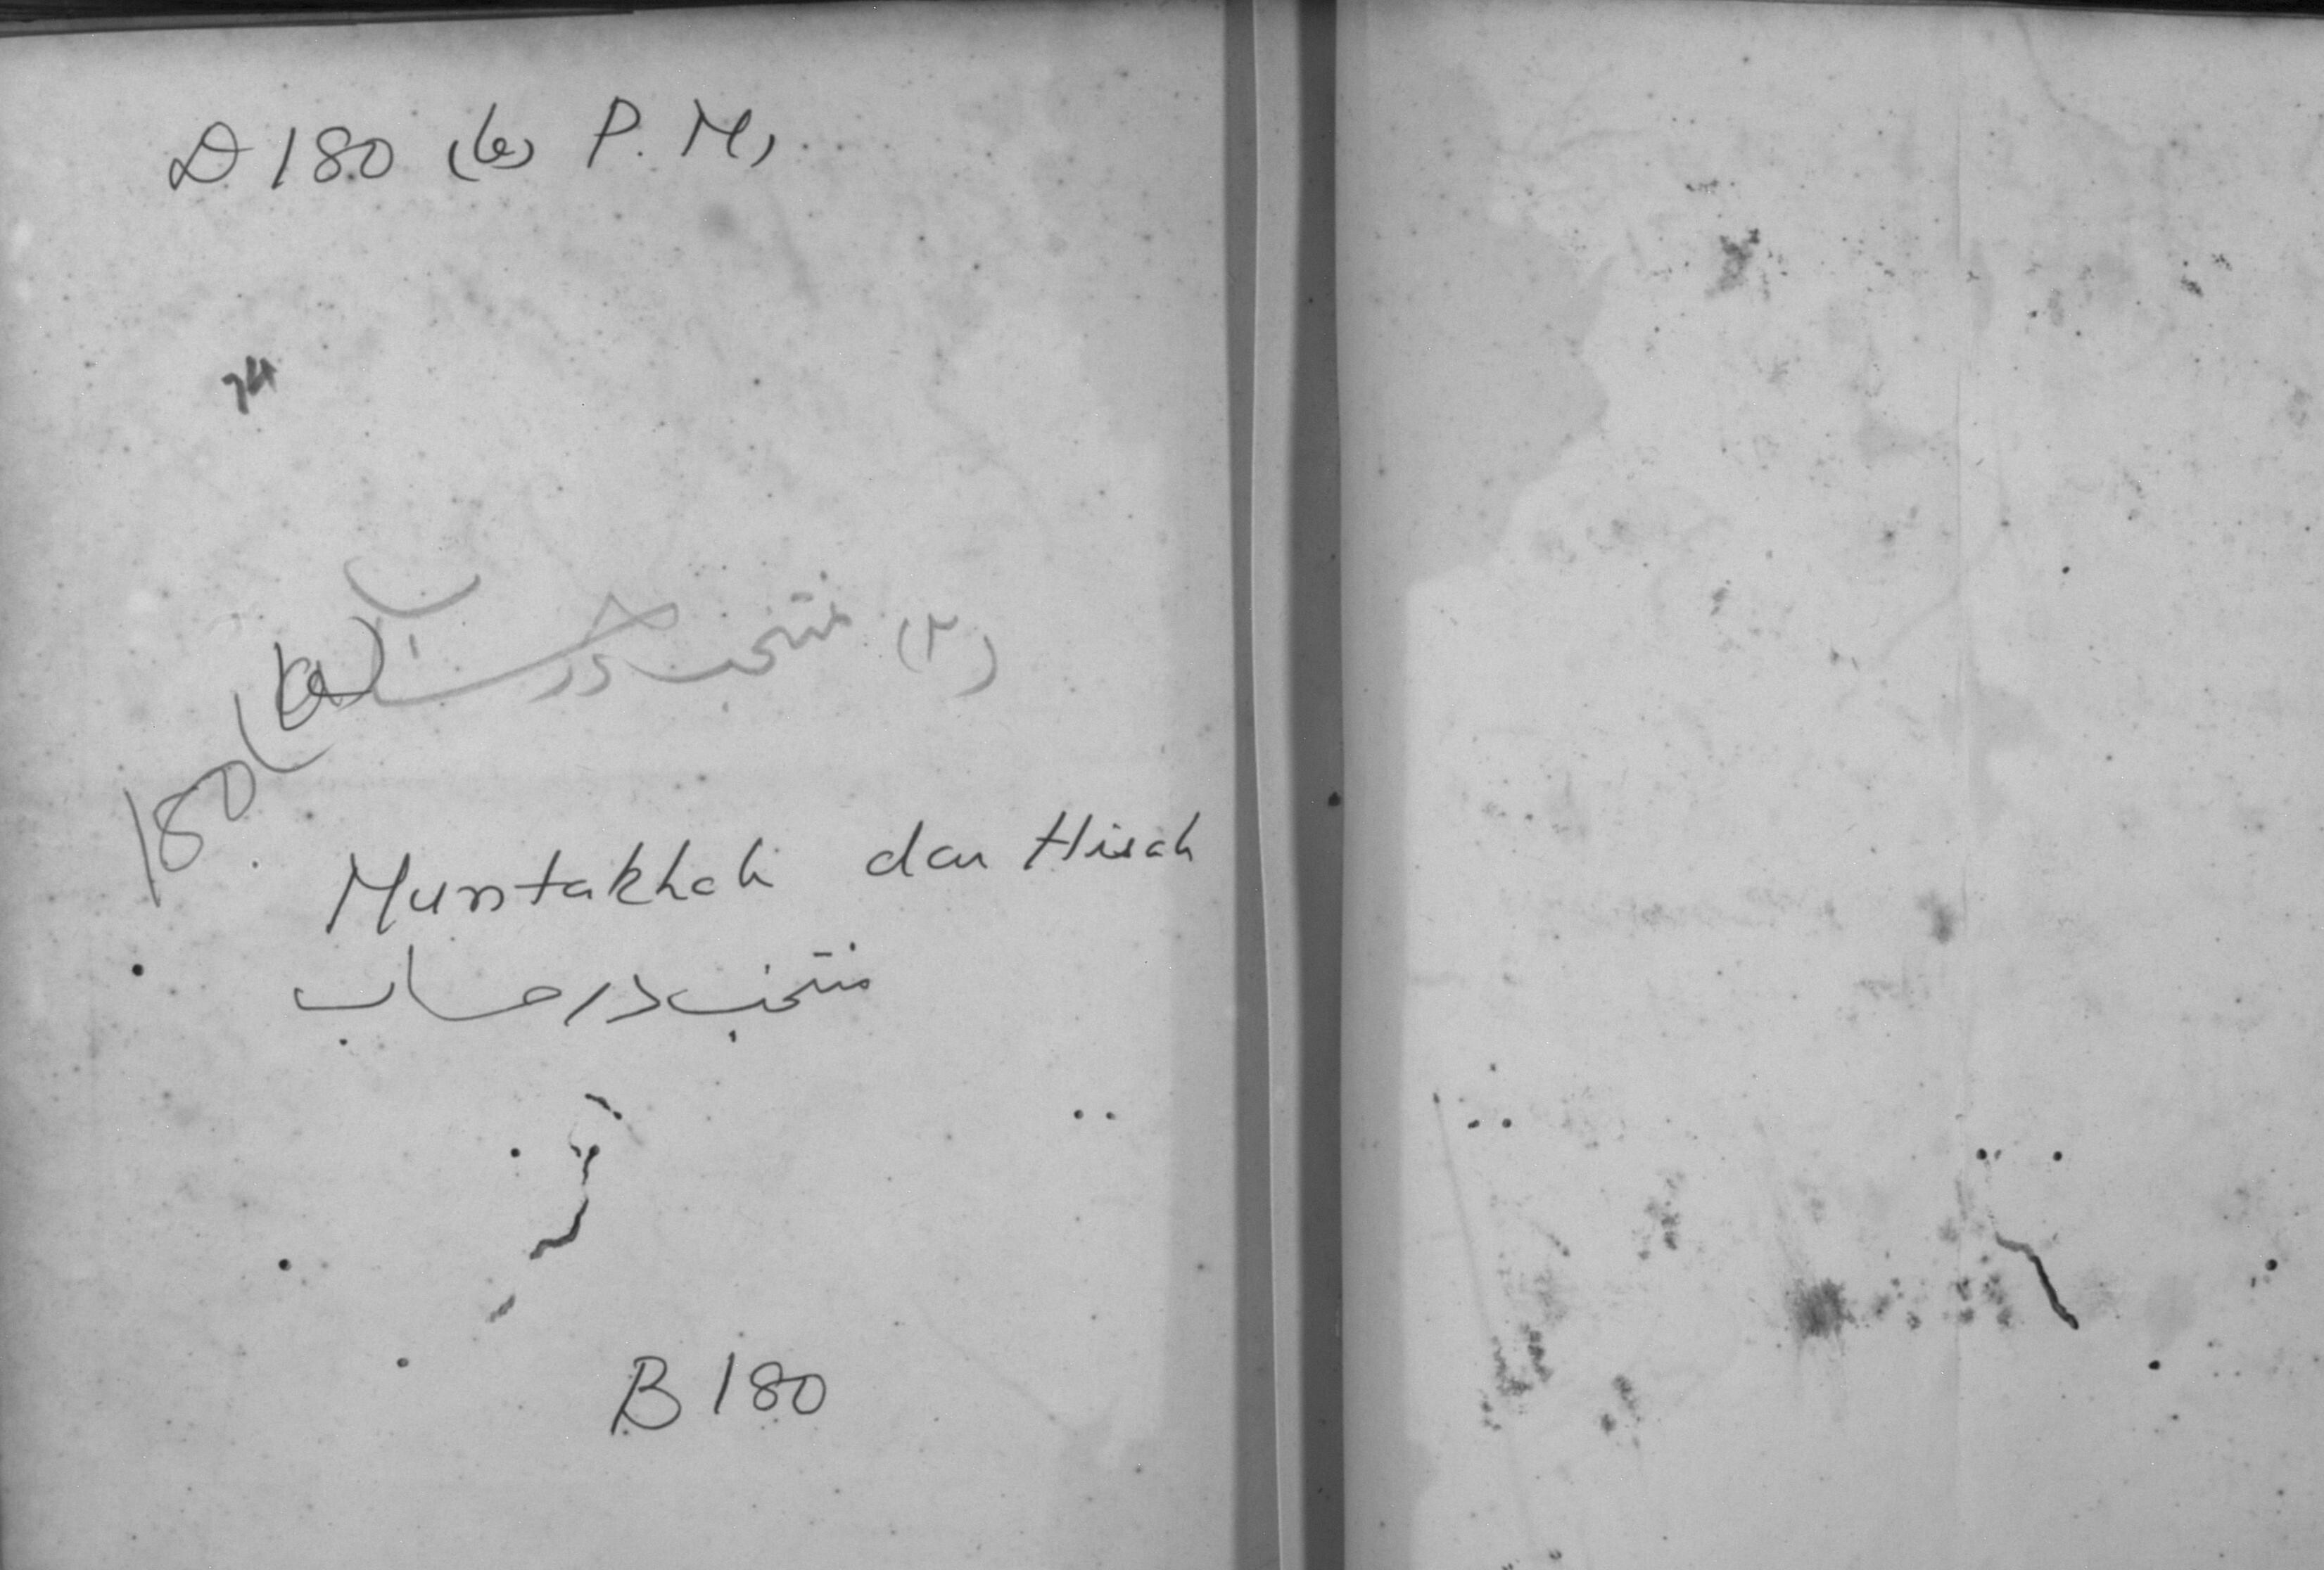 D 180 (b) P. M.
74
(۲) منتخب در حساب
180 (b)
Muntakhab dar Hisab
منتخب در حساب
B 180